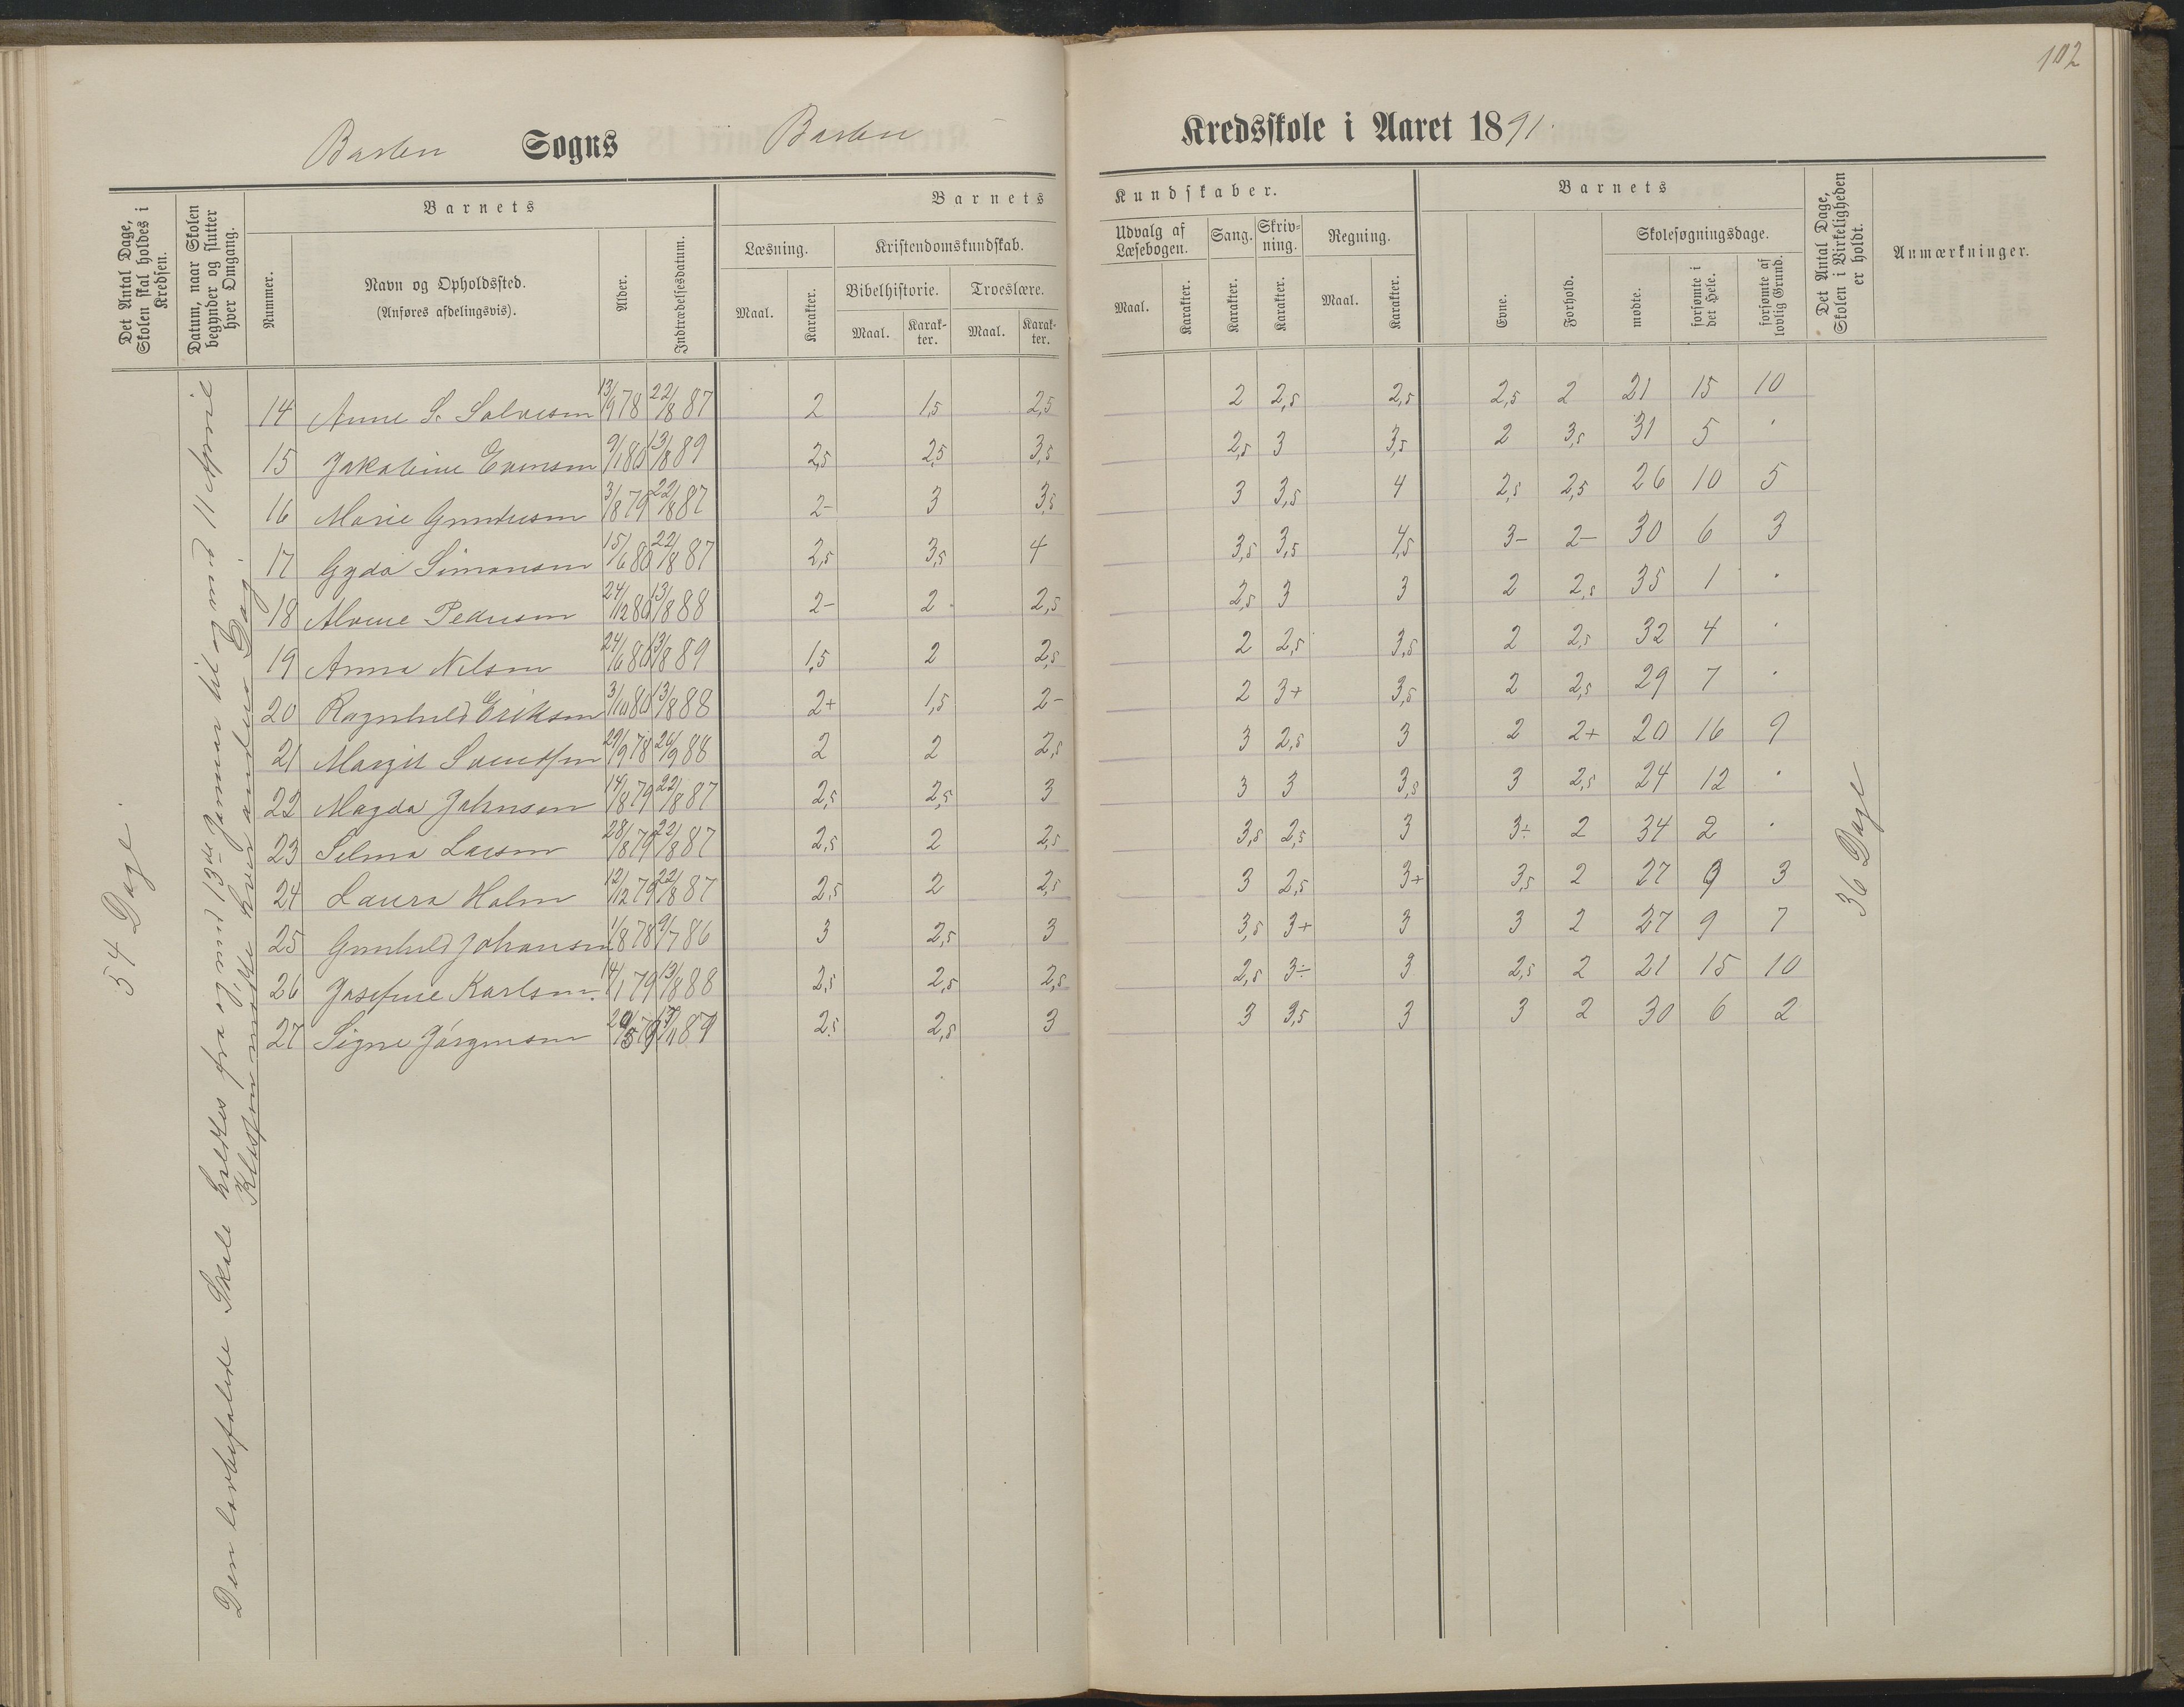 102
Barbu Sogns Barbu Kredsskole i Aaret 1891.
Det Antal Dage, Skolen skal holdes i Kredsen.
Datum, naar Skolen begynder og slutter hver Omgang.
Barnets
Nummer.
Navn og Opholdssted.
(Anføres afdelingsvis).
Alder.
Indtrædelsesdatum.
Barnets Kundskaber.
Læsning.
Maal. Karakter.
Kristendomskundskab.
Bibelhistorie. Troeslære.
Maal. Karakter. Maal. Karakter.
Udvalg af Læsebogen.
Maal. Karakter.
Sang.
Karakter.
Skrivning.
Karakter.
Regning.
Maal. Karakter.
Barnets
Evne. Forhold.
Skolesøgningsdage.
mødte. forsømte i det Hele. forsømte af lovlig Grund.
Det Antal Dage, Skolen i Virkeligheden er holdt.
Anmærkninger.
54 Dage.
Den lovbefalede Skole holdtes fra og med 13de Januar til og med 11 April
Klassen mødte hver anden Dag.
14 Anne S. Salvesen 13/9 78 22/8 87 2 1,5 2,5 2 2,5 2,5 2,5 2 21 15 10
15 Jakobine Evensen 9/1 80 13/8 89 2,5 2,5 3,5 2,5 3 3,5 2 3,5 31 5 .
16 Marie Gundersen 3/8 79 22/8 87 2- 3 3,5 3 3,5 4 2,5 2,5 26 10 5
17 Gyda Simonsen 15/6 80 22/8 87 2,5 3,5 4 3,5 3,5 4,5 3- 2- 30 6 3
18 Alvine Pedersen 24/12 80 13/8 88 2- 2 2,5 2,5 3 3 2 2,5 35 1 .
19 Anna Nilsen 24/6 80 13/8 89 1,5 2 2,5 2 2,5 3,5 2 2,5 32 4 .
20 Ragnhild Eriksen 3/10 80 13/8 88 2+ 1,5 2- 2 3+ 3,5 2 2,5 29 7 .
21 Margit Svendsen 29/9 78 26/9 88 2 2 2,5 3 2,5 3 2 2+ 20 16 9
22 Magda Johnsen 14/8 79 22/8 87 2,5 2,5 3 3 3 3,5 3 2,5 24 12 .
23 Selma Larsen 28/8 79 22/8 87 2,5 2 2,5 3,5 2,5 3 3÷ 2 34 2 .
24 Laura Holm 12/12 79 22/8 87 2,5 2 2,5 3 2,5 3+ 3,5 2 27 9 3
25 Gunhild Johansen 1/8 78 9/7 86 3 2,5 3 3,5 3+ 3 3 2 27 9 7
26 Josefine Karlsen. 14/1 79 13/8 88 2,5 2,5 2,5 2,5 3÷ 3 2,5 2 21 15 10
27 Signe Jörgensen 2,5 2,5 3 3 3,5 3 3 2 30 6 2
36 Dage